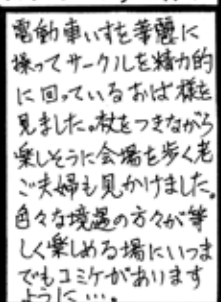 電動車いすを華麗に
操ってサークルを精力的
に回っているおば様を
見ました。杖をつきながら
楽しそうに会場を歩く老
ご夫婦も見かけました。
色々な境遇の方々が等
しく楽しめる場にいつま
でもコミケがあります
ように…。